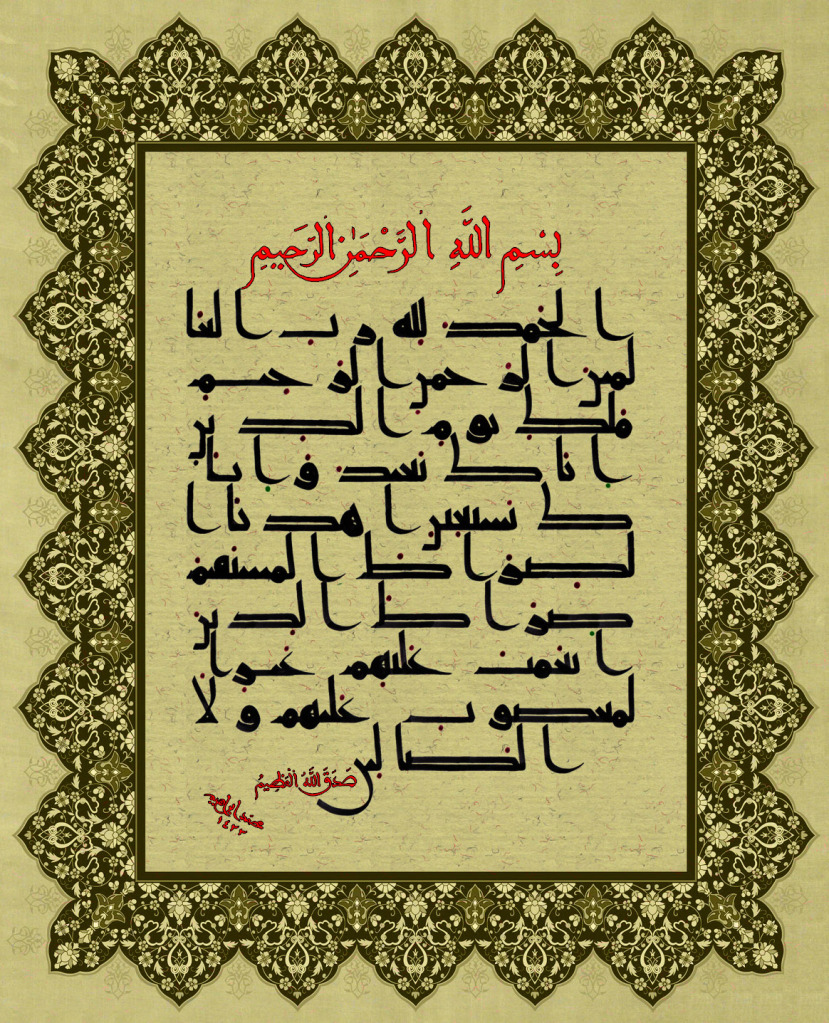 بِسْمِ اللَّهِ الرَّحْمَٰنِ الرَّحِيمِ
الحمد لله رب العا
لمين الرحمن الرحيم
ملك يوم الدين
اياك نعبد و ايا
ك نستعين اهدنا ا
لصراط المستقيم
صراط الذين
انعمت عليهم غير ا
لمغضوب عليهم و لا
الضالين
صَدَقَ اللَّهُ الْعَظِيمُ